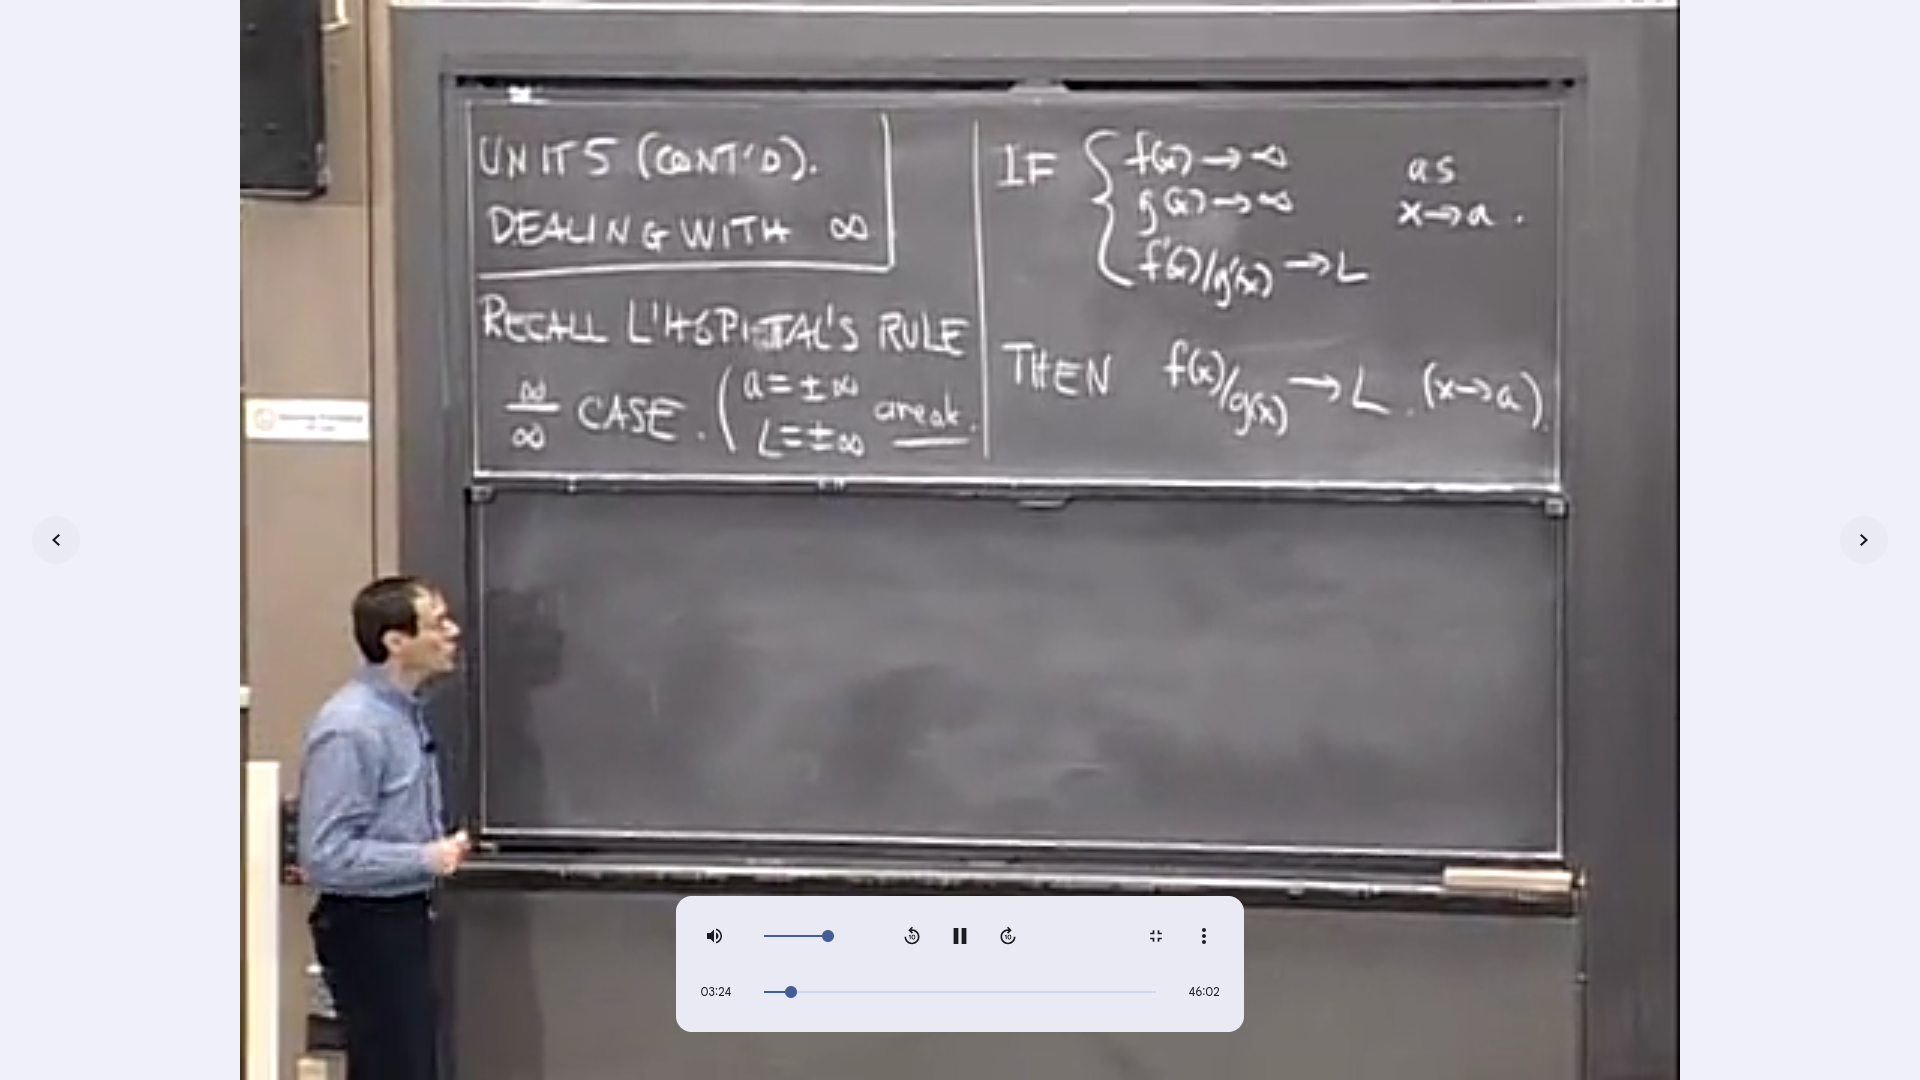 UNIT 5 (CONT'D).
DEALING WITH ∞
RECALL L'HÔPITAL'S RULE
∞/∞ CASE. (a = ±∞
L = ±∞ are ok.
IF { f(x) → ∞ as
g(x) → ∞ x → a.
f'(x)/g'(x) → L
THEN f(x)/g(x) → L. (x → a).
10
10
03:24
46:02